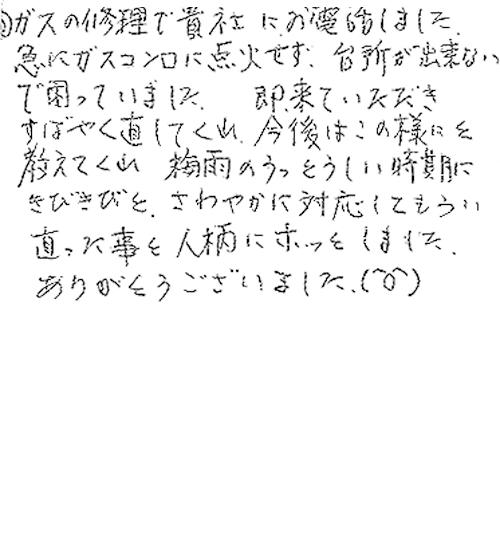 ガスの修理で貴社にお電話しました.
急にガスコンロに点火せず、台所が出来ない
で困っていました. 即来ていただき
すばやく直してくれ.今後はこの様にと
教えてくれ 梅雨のうっとうしい時期に
きびきびと.さわやかに対応してもらい
直った事と人柄にホッとしました.
ありがとうございました.(^o^)